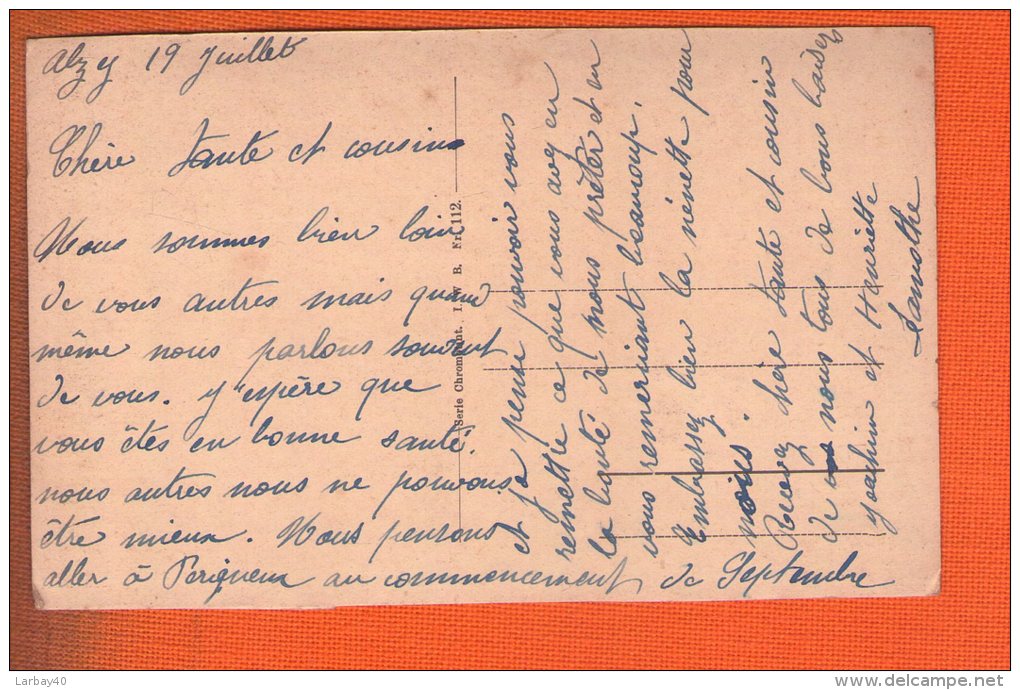 Alzey 19 Juillet
Chère tante et cousin
Nous sommes bien loin
de vous autres mais quand
même nous parlons souvent
de vous. J'espère que
vous êtes en bonne santé.
nous autres nous ne pouvons
être mieux. Nous pensons
aller à Perigueux au commencement de Septembre
et je pense pouvoir vous
remettre ce que vous avez eu
la bonté de nous prêter et en
vous remerciant beaucoup.
Embrassez bien la ninette pour
nous.
Recevez chère tante et cousin
de nous tous de bons baisers
Joachim et Henriette
Lamothe
Serie Chrom B. Fr. 112.
Larbay40
www.delcampe.net